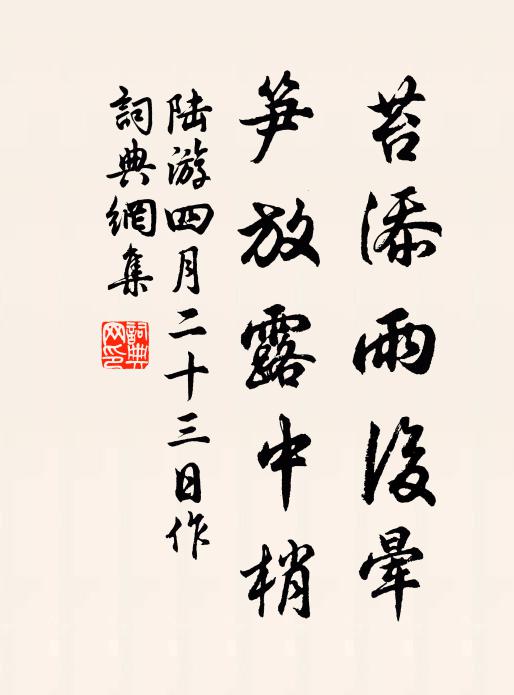 苔添雨後暈
笋放露中梢
陆游四月二十三日作
詞典網集
詞典
网印